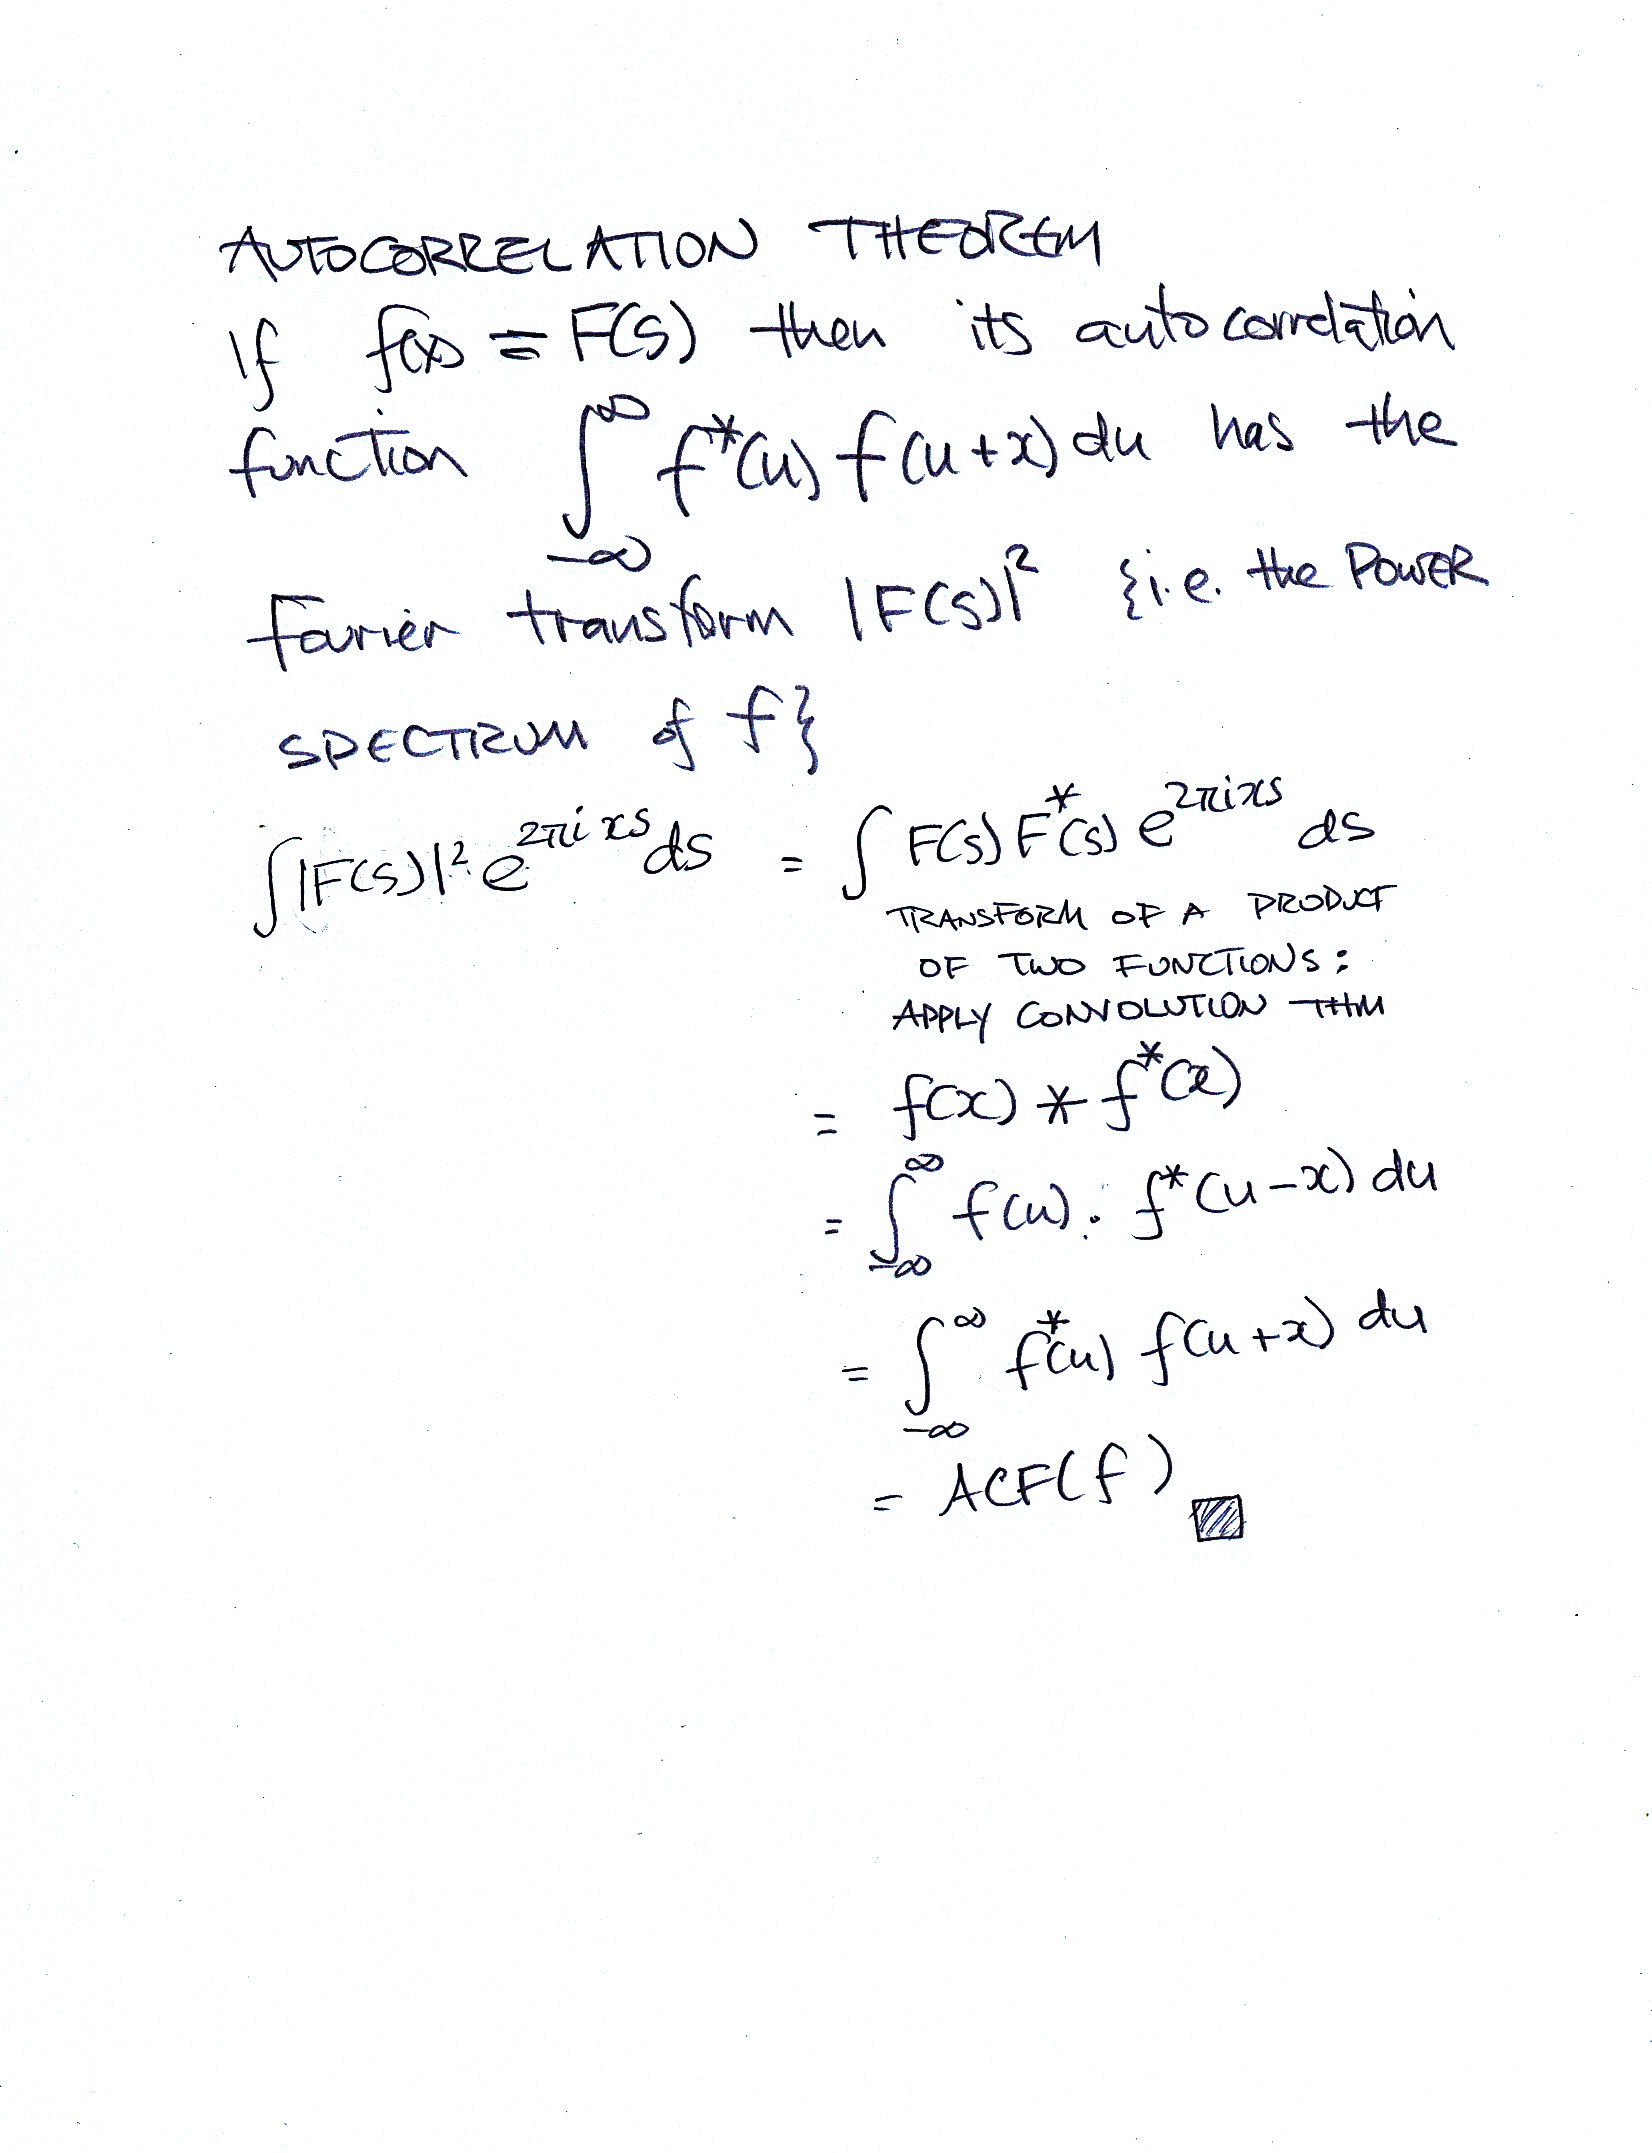 AUTOCORRELATION THEOREM
If f(x) = F(s) then its autocorrelation
function ∫_{-∞}^{∞} f*(u) f(u+x) du has the
Fourier transform |F(s)|² {i.e. the POWER
SPECTRUM of f}
∫|F(s)|² e^{2πixs} ds = ∫ F(s) F*(s) e^{2πixs} ds
TRANSFORM OF A PRODUCT
OF TWO FUNCTIONS:
APPLY CONVOLUTION THM
= f(x) * f*(x)
= ∫_{-∞}^{∞} f(u) . f*(u-x) du
= ∫_{-∞}^{∞} f*(u) f(u+x) du
= ACF(f)